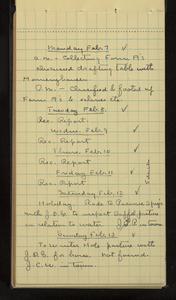 Monday Feb. 7 ✓
a.m. - Collecting Form A's
discussed drafting table with
P.m. - Classified & footed up
Form A's & salaries etc.
Tuesday Feb. 8. ✓
Rec. Report.
Wednes. Feb. 9 ✓
Rec. Report.
Thurs. Feb. 10 ✓
Rec. Report
Friday Feb. 11 ✓
Rec. Report
Saturday Feb. 12 ✓
Holiday. Rode to
with J.D.C. to inspect
in relation to water.
Sunday Feb. 13
To pasture with
J.D.C. for horse. Not found.
J.C. — town.